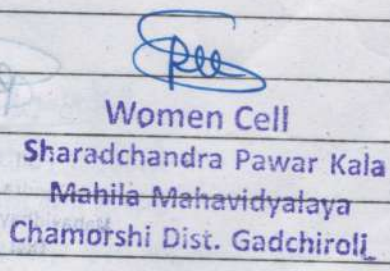 Women Cell
Sharadchandra Pawar Kala
Mahila Mahavidyalaya
Chamorshi Dist. Gadchiroli